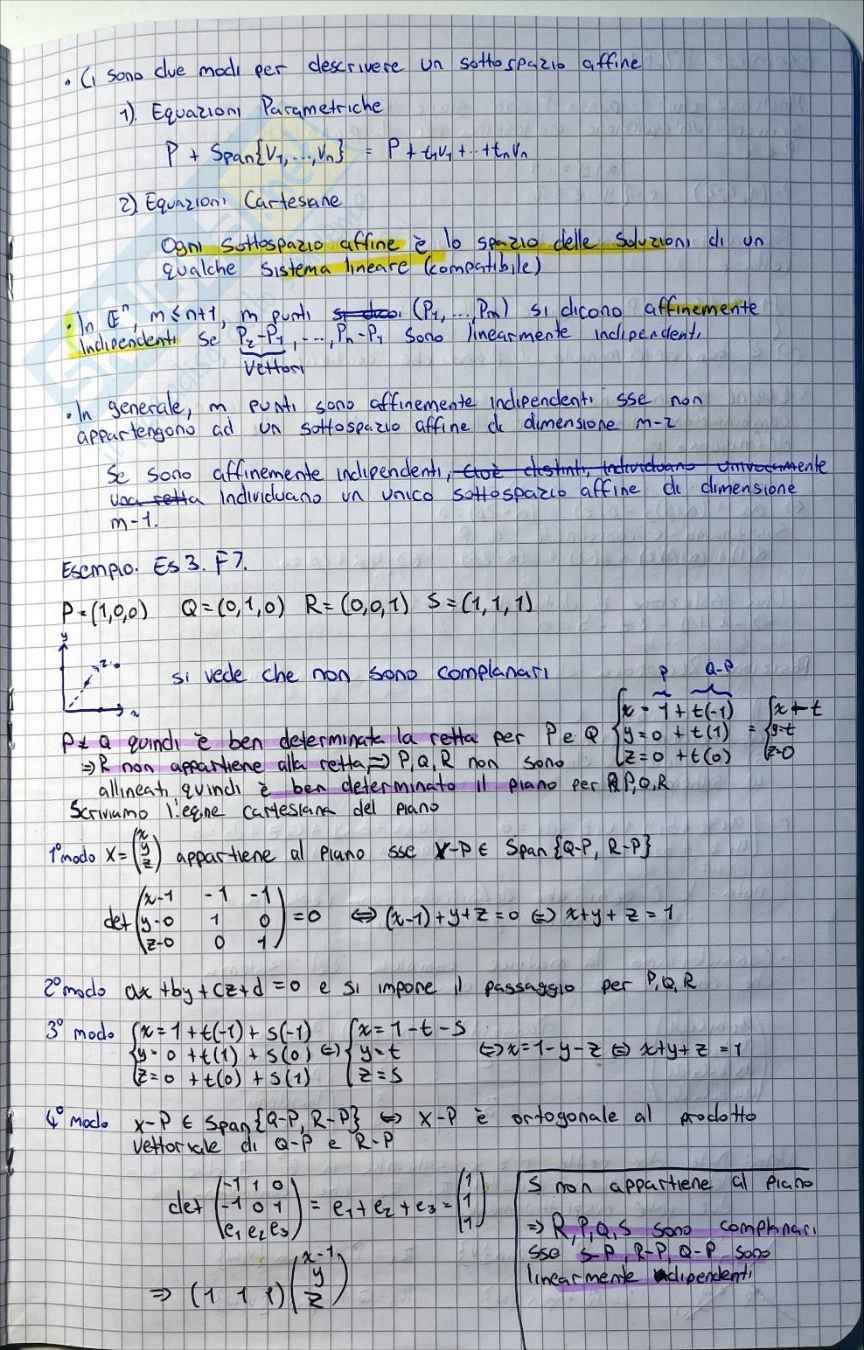 • Ci sono due modi per descrivere un sottospazio affine
1). Equazioni Parametriche
P + Span{v₁,...,vₙ} = P + t₁v₁ + ... + tₙvₙ
2) Equazioni Cartesiane
Ogni sottospazio affine è lo spazio delle soluzioni di un
qualche sistema lineare (compatibile)
• In Eⁿ, m ≤ n+1, m punti (P₁,...,Pₘ) si dicono affinemente
indipendenti se P₂-P₁, ..., Pₙ-P₁ sono linearmente indipendenti
vettori
• In generale, m punti sono affinemente indipendenti sse non
appartengono ad un sottospazio affine di dimensione m-2
Se sono affinemente indipendenti, cioè distinti, individuano univocamente
una retta individuano un unico sottospazio affine di dimensione
m-1.
Esempio. Es 3. F7.
P=(1,0,0) Q=(0,1,0) R=(0,0,1) S=(1,1,1)
y
z
x
si vede che non sono complanari
P Q-P
P≠Q quindi è ben determinata la retta per P e Q { x = 1 + t(-1) y = 0 + t(1) z = 0 + t(0) = { y=t z=0
⇒ R non appartiene alla retta ⇒ P,Q,R non sono
allineati quindi è ben determinato il piano per P,Q,R
Scriviamo l'eqne cartesiana del piano
1° modo X = (x y z) appartiene al piano sse X-P ∈ Span{Q-P, R-P}
det (x-1 -1 -1
y-0 1 0
z-0 0 1) = 0 ⇔ (x-1)+y+z=0 ⇔ x+y+z=1
2° modo ax+by+cz+d=0 e si impone il passaggio per P,Q,R
3° modo { x=1+t(-1)+s(-1) { x=1-t-s
y=0+t(1)+s(0) ⇔ y=t ⇔ x=1-y-z ⇔ x+y+z=1
z=0+t(0)+s(1) z=s
4° modo x-P ∈ Span{Q-P, R-P} ⇔ X-P è ortogonale al prodotto
vettoriale di Q-P e R-P
det (-1 1 0
-1 0 1
e₁ e₂ e₃) = e₁+e₂+e₃ = (1 1 1)
⇒ (1 1 1) (x-1 y z)
S non appartiene al piano
⇒ R,P,Q,S sono complanari
sse S-P, R-P, Q-P sono
linearmente dipendenti